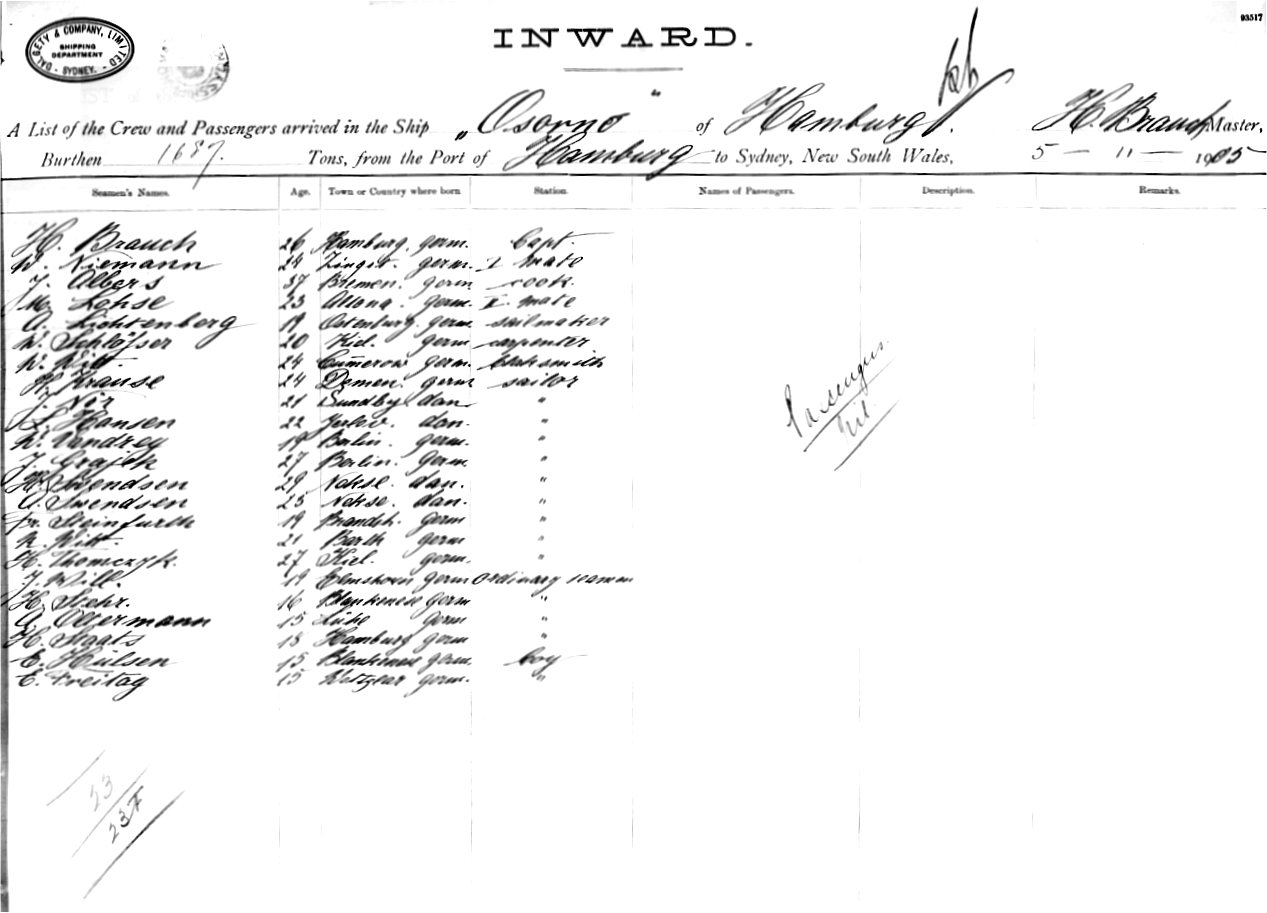 93517
DALGETY & COMPANY, LIMITED
SHIPPING
DEPARTMENT
SYDNEY.
INWARD.
A List of the Crew and Passengers arrived in the Ship „Osorno" of Hamburg. H. Brauch Master,
Burthen 1687. Tons, from the Port of Hamburg to Sydney, New South Wales, 5 - 11 - 1905
Seamen's Names. Age. Town or Country where born Station. Names of Passengers. Description. Remarks.
H. Brauch 26 Hamburg. germ. Capt.
W. Niemann 24 Zingst. germ. I mate
J. Albers 37 Bremen. germ cook.
M. Lohse 23 Altona. germ. II. mate
A. Lichtenberg 19 germ. sailmaker
W. Schlösser 20 Kiel. germ carpenter
W. Witt. 24 Cummerow germ. blaksmith
H. Krause 24 Demen. germ sailor
J. Nör 21 Sundby dan. "
L. Hansen 22 Jerlev. dan. "
W. Vandrey 19 Berlin. germ. "
J. Grajek 27 Berlin. germ. "
H. Swendsen 29 Nekse. dan. "
A. Swendsen 25 Nekse. dan. "
Fr. Steinfurth 19 germ "
Witt. 21 Barth germ "
H. Thomczyk. 27 Kiel. germ. "
J. Will. 19 Elmshorn germ ordinary seaman
H. Stehr. 16 Blankenese germ "
A. Oltermann 15 Lühe germ "
H. Staats 18 Hamburg germ "
E. Hülsen 15 Blankenese germ. boy
E. Freitag 15 Wetzlar germ. "
Passengers
nil.
23
23